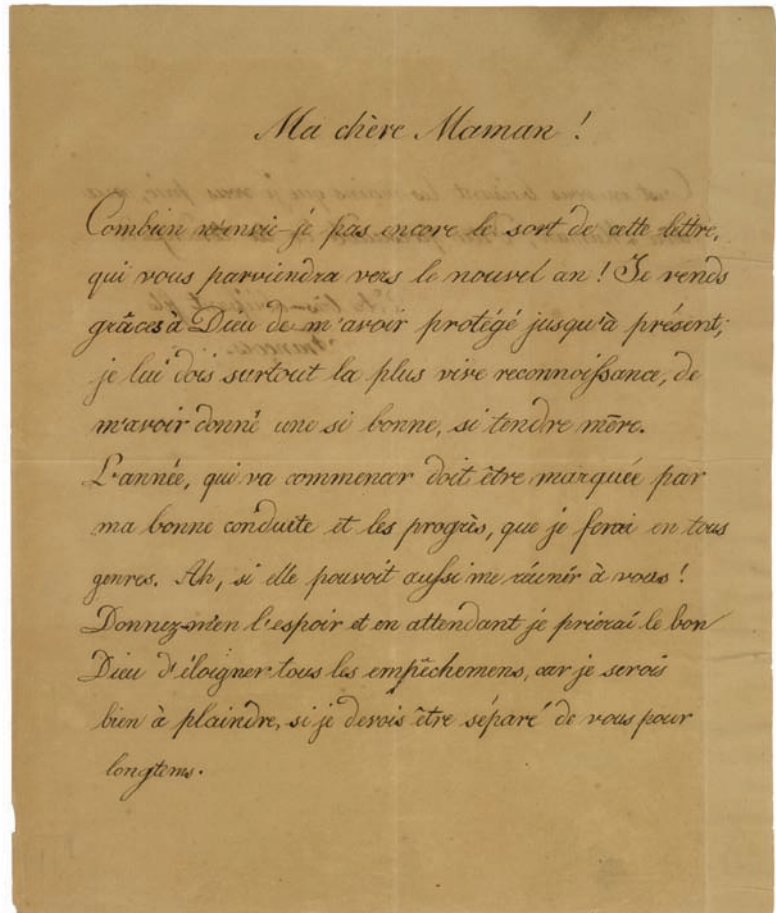 Ma chère Maman !
Combien n'envie-je pas encore le sort de cette lettre,
qui vous parviendra vers le nouvel an ! Je rends
grâces à Dieu de m'avoir protégé jusqu'à présent;
je lui dois surtout la plus vive reconnoissance, de
m'avoir donné une si bonne, si tendre mère.
L'année, qui va commencer doit être marquée par
ma bonne conduite et les progrès, que je ferai en tous
genres. Ah, si elle pouvoit aussi me réunir à vous !
Donnez-m'en l'espoir et en attendant je prierai le bon
Dieu d'éloigner tous les empêchemens, car je serois
bien à plaindre, si je devois être séparé de vous pour
longtems.